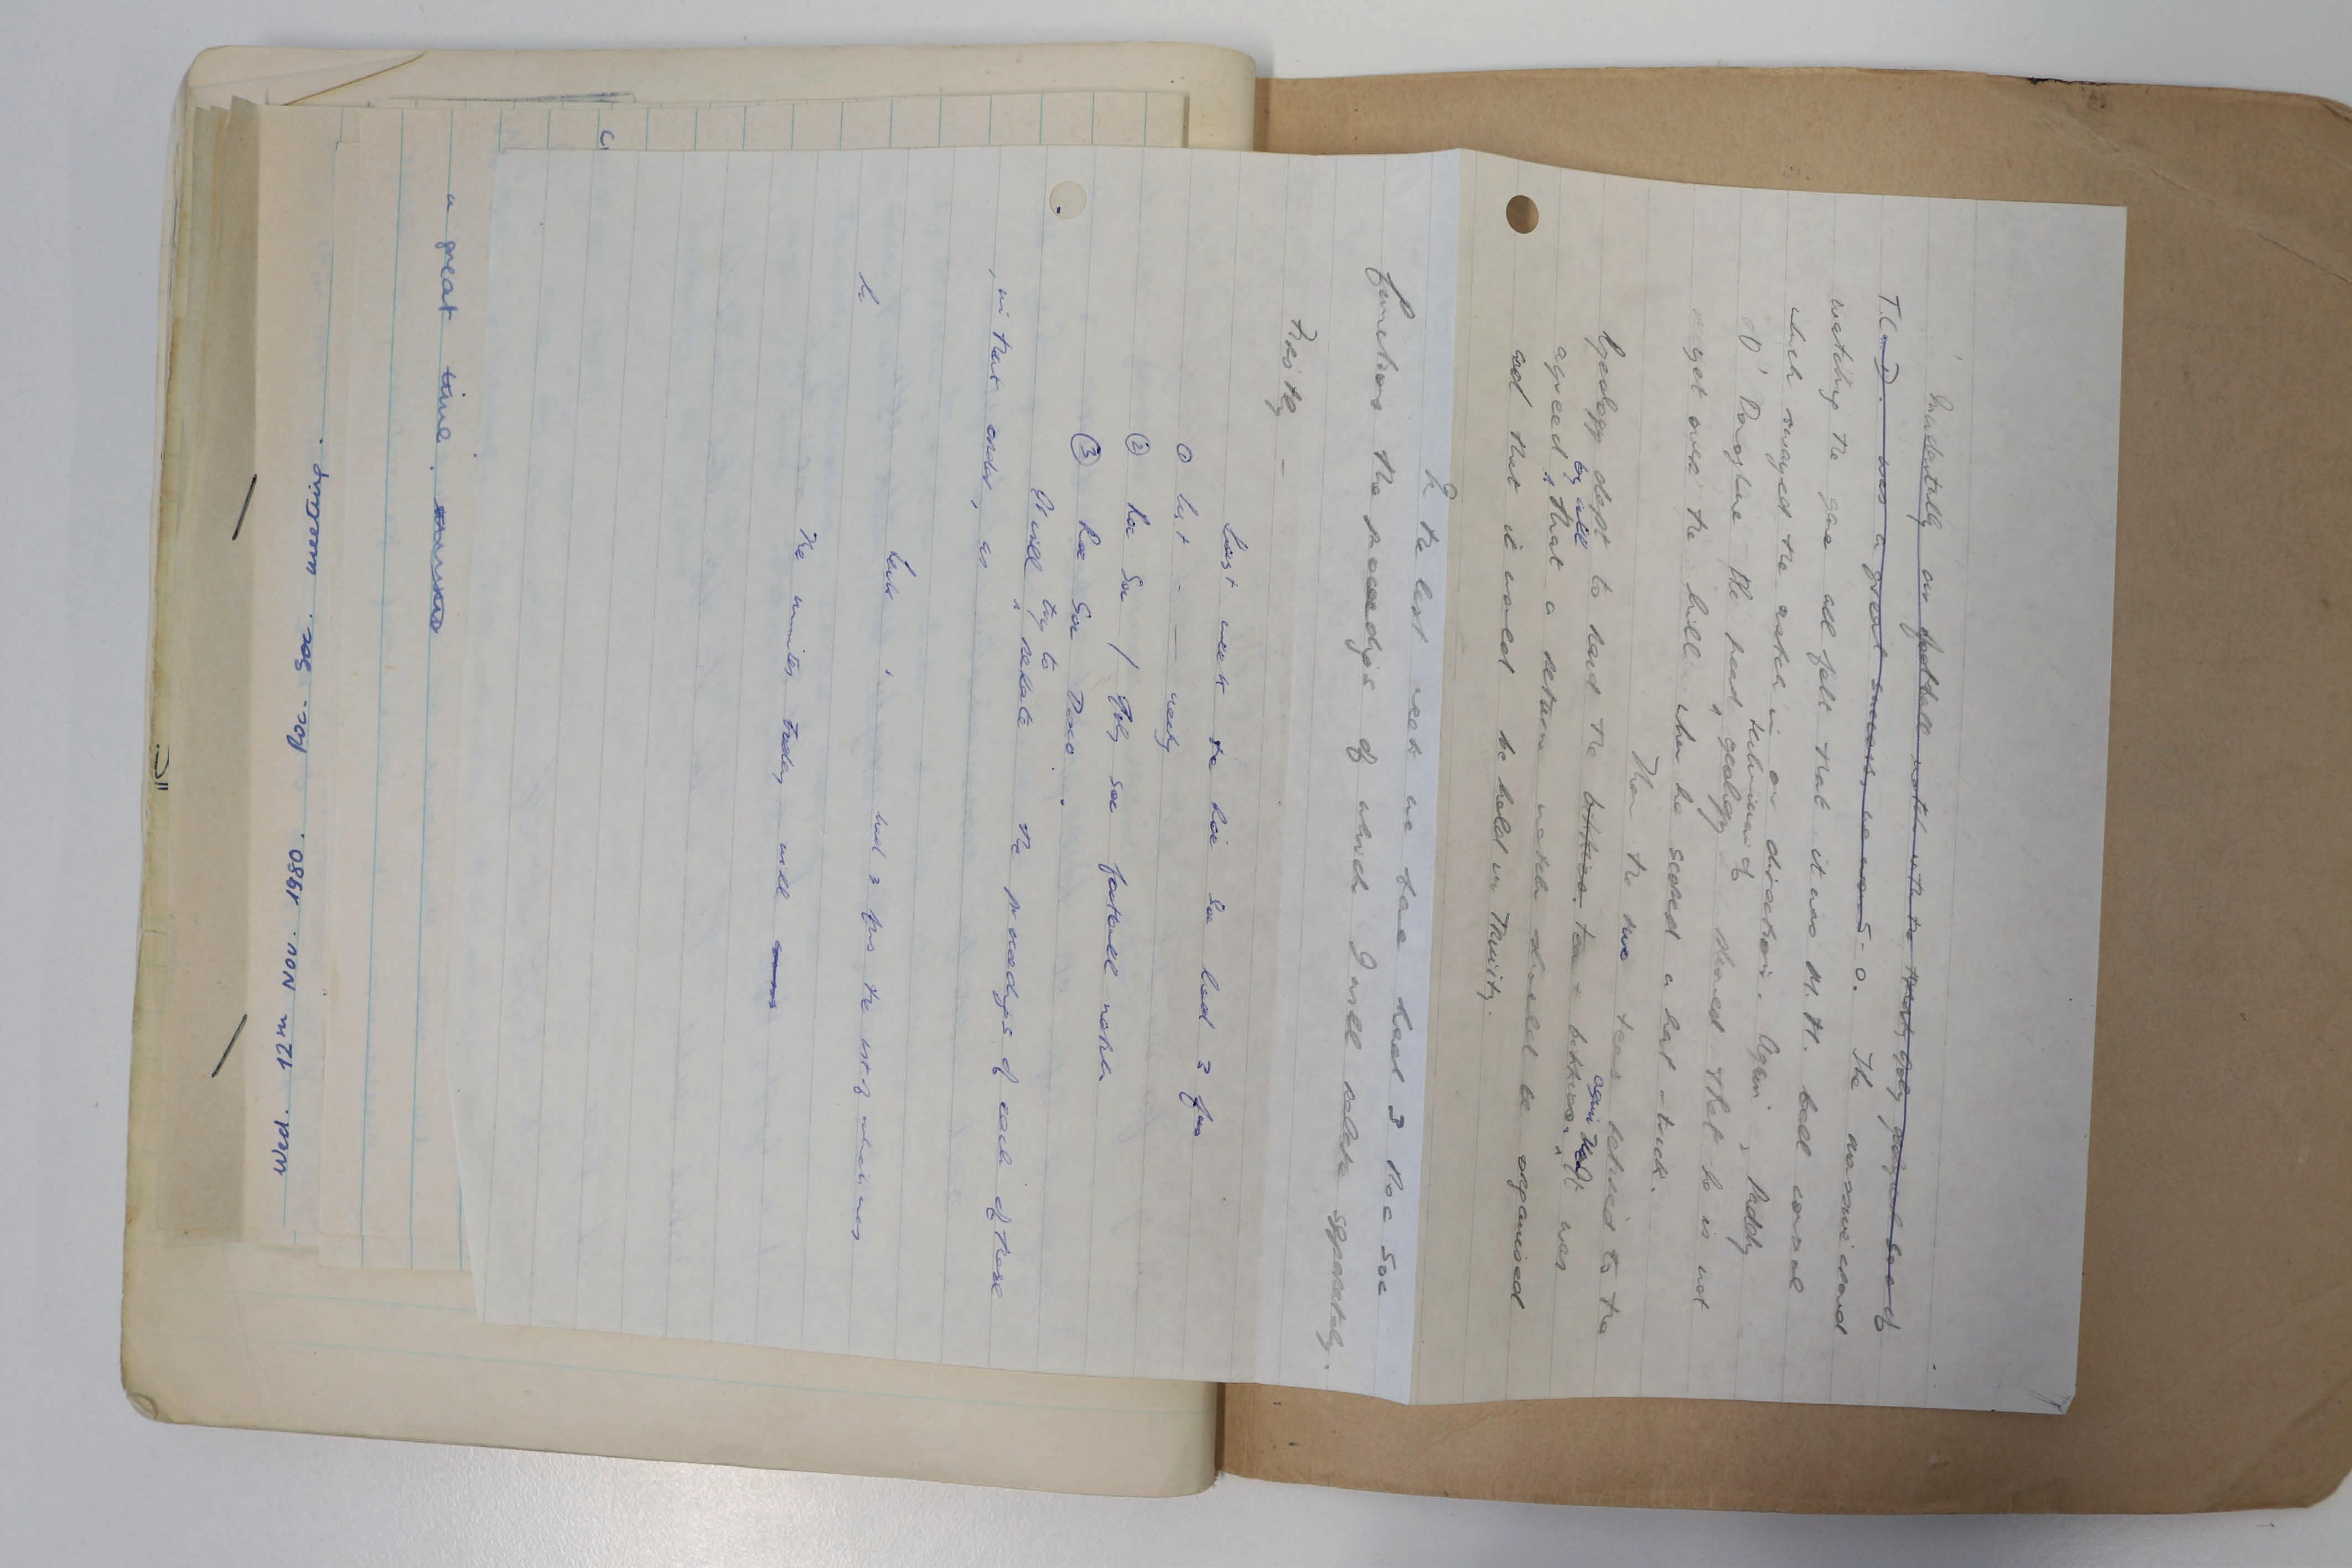 Incidentally our football match with the Trinity Geoly
T.C.D. was a great success, we won 5-0. The massive crowd
watching the game all felt that it was M.H. ball control
which swayed the match in our direction. Again, Paddy
O' Donoghue - the head technician of geology showed that he is not
yet over the hill when he scored a hat-trick.
Then the two teams retired to the
geology dept to have the bitties tea + bitties. again It was
agreed by all that a return match should be organised
and that it would be held in Trinity.
In the last week we have had 3 Roc Soc
functions the proceedings of which I will relate separately.
Firstly -
Last week the Roc Soc had 3 fns
① Lst - — ready
② Roc Soc / Goly Soc football match
③ Roc Soc Disco.
It will try to relate the proceedings of each of these
, in that order, as
Last , had 3 fns the 1st of which was
h
The minutes today will
a great time.
Wed. 12th Nov. 1980. Roc-Soc. meeting.